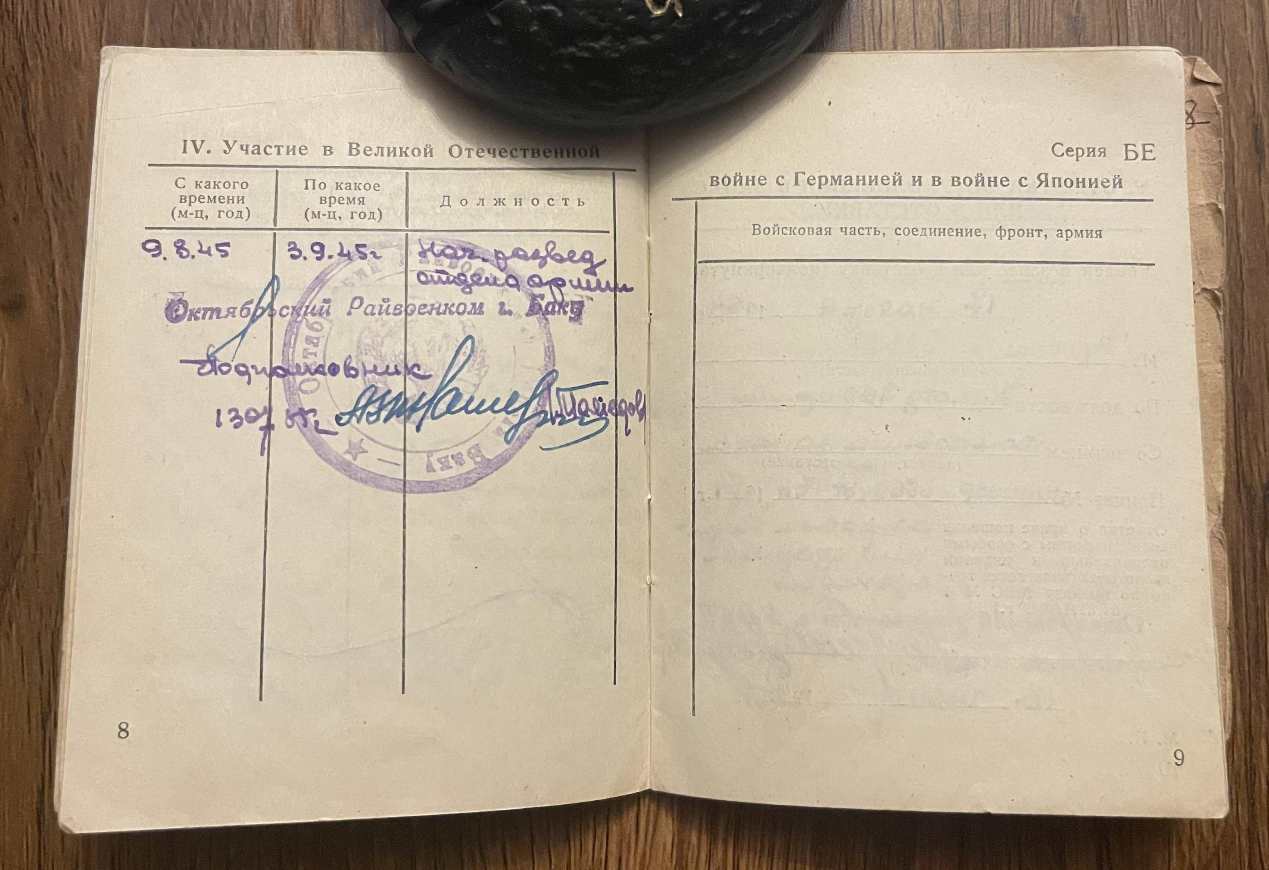 IV. Участие в Великой Отечественной
С какого
времени
(м-ц, год)
По какое
время
(м-ц, год)
Должность
9.8.45
3.9.45г
Нач. развед
отдела армии
Октябрьский Райвоенком г. Баку
Подполковник
Мамедов
Баку
8
Серия БЕ
войне с Германией и в войне с Японией
Войсковая часть, соединение, фронт, армия
9
8